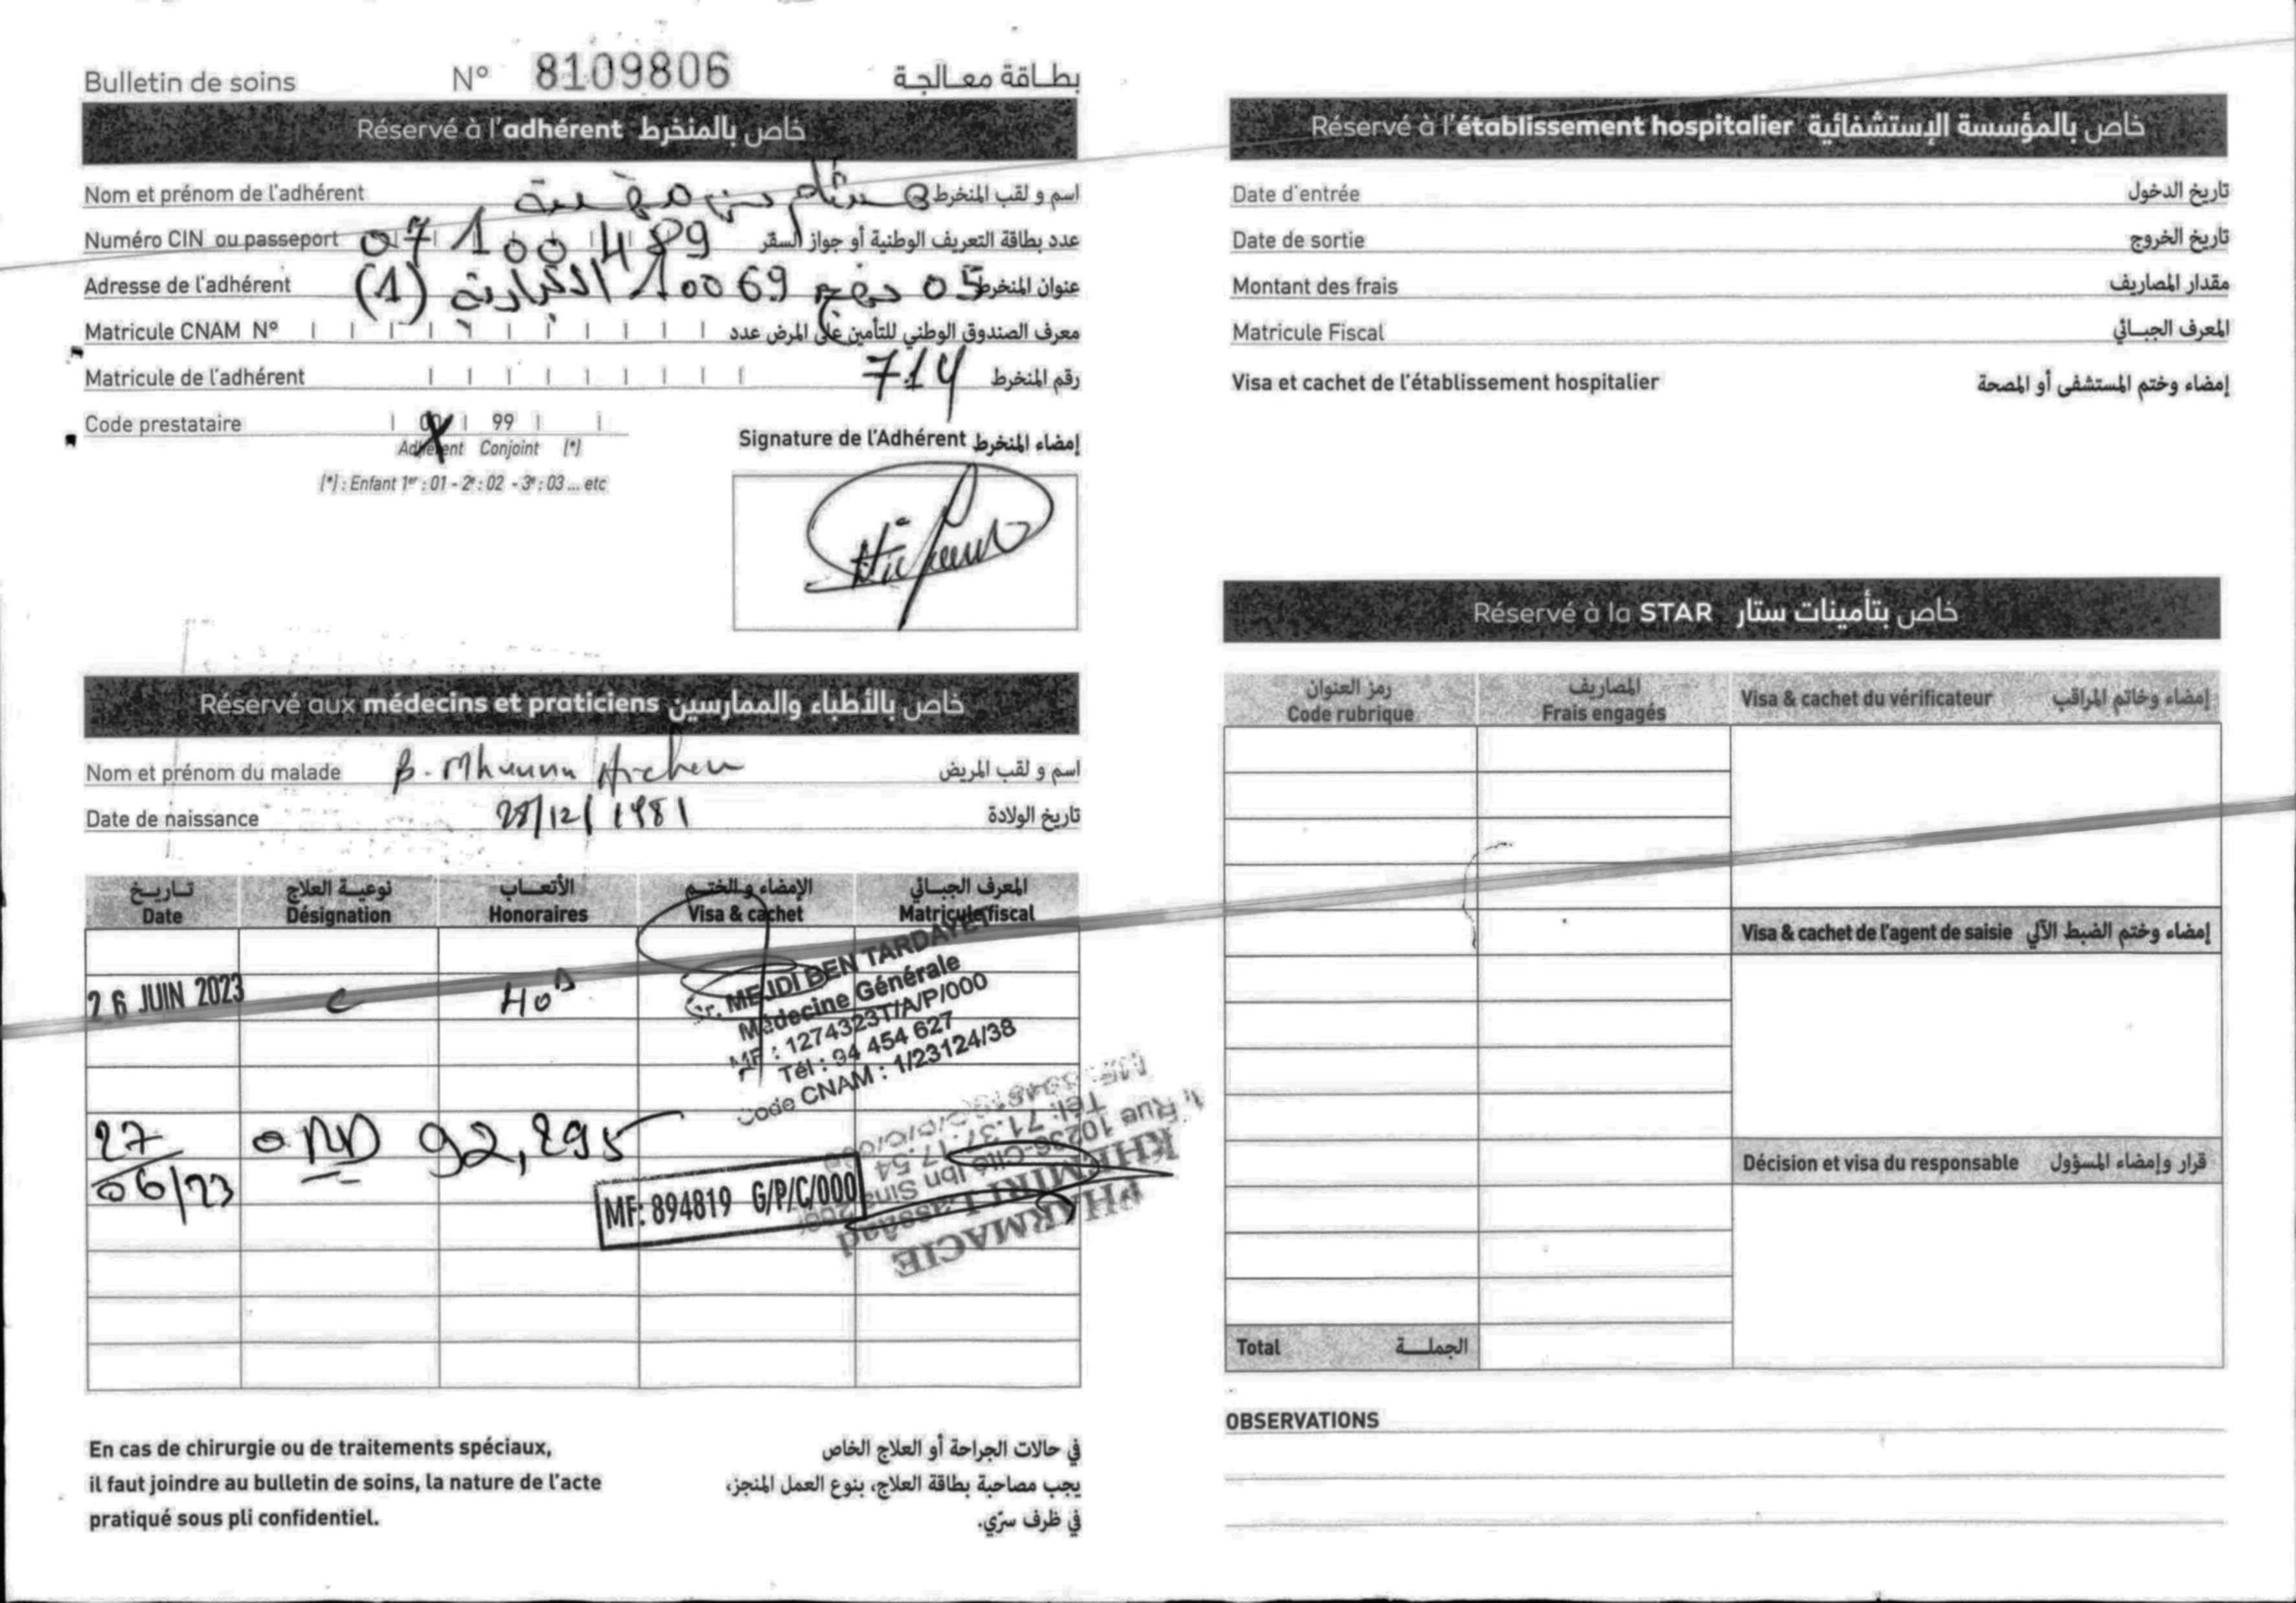 Bulletin de soins N° 8109806 بطاقة معالجة
Réservé à l'adhérent خاص بالمنخرط
Nom et prénom de l'adhérent هشام بن مهنية اسم و لقب المنخرط
Numéro CIN ou passeport 07100489 عدد بطاقة التعريف الوطنية أو جواز السفر
Adresse de l'adhérent 05 نهج 10069 الكبارية (1) عنوان المنخرط
Matricule CNAM N° معرف الصندوق الوطني للتأمين على المرض عدد
Matricule de l'adhérent 714 رقم المنخرط
Code prestataire 00 99
Adhérent Conjoint (*)
(*) : Enfant 1er : 01 - 2e : 02 - 3e : 03 ... etc
Signature de l'Adhérent إمضاء المنخرط
Réservé aux médecins et praticiens خاص بالأطباء والممارسين
Nom et prénom du malade B. Mhenna Hichem اسم و لقب المريض
Date de naissance 28/12/1981 تاريخ الولادة
تاريخ نوعية العلاج الأتعاب الإمضاء والختم المعرف الجبائي
Date Désignation Honoraires Visa & cachet Matricule fiscal
26 JUIN 2023 C 40D
Dr. MEJDI BEN TARDAYET
Médecine Générale
MF : 1274323T/A/P/000
Tél : 94 454 627
Code CNAM : 1/23124/38
27/06/23 ORD 92,295
MF: 894819 G/P/C/000
PHARMACIE
KHEMIRI Lassaad
Rue 10236-Cité Ibn Sina
Tél: 71.37.17.54
En cas de chirurgie ou de traitements spéciaux,
il faut joindre au bulletin de soins, la nature de l'acte
pratiqué sous pli confidentiel.
في حالات الجراحة أو العلاج الخاص
يجب مصاحبة بطاقة العلاج، بنوع العمل المنجز،
في ظرف سرّي.
Réservé à l'établissement hospitalier خاص بالمؤسسة الإستشفائية
Date d'entrée تاريخ الدخول
Date de sortie تاريخ الخروج
Montant des frais مقدار المصاريف
Matricule Fiscal المعرف الجبائي
Visa et cachet de l'établissement hospitalier إمضاء وختم المستشفى أو المصحة
Réservé à la STAR خاص بتأمينات ستار
رمز العنوان المصاريف
Code rubrique Frais engagés Visa & cachet du vérificateur إمضاء وخاتم المراقب
Visa & cachet de l'agent de saisie إمضاء وختم الضبط الآلي
Décision et visa du responsable قرار وإمضاء المسؤول
Total الجملة
OBSERVATIONS